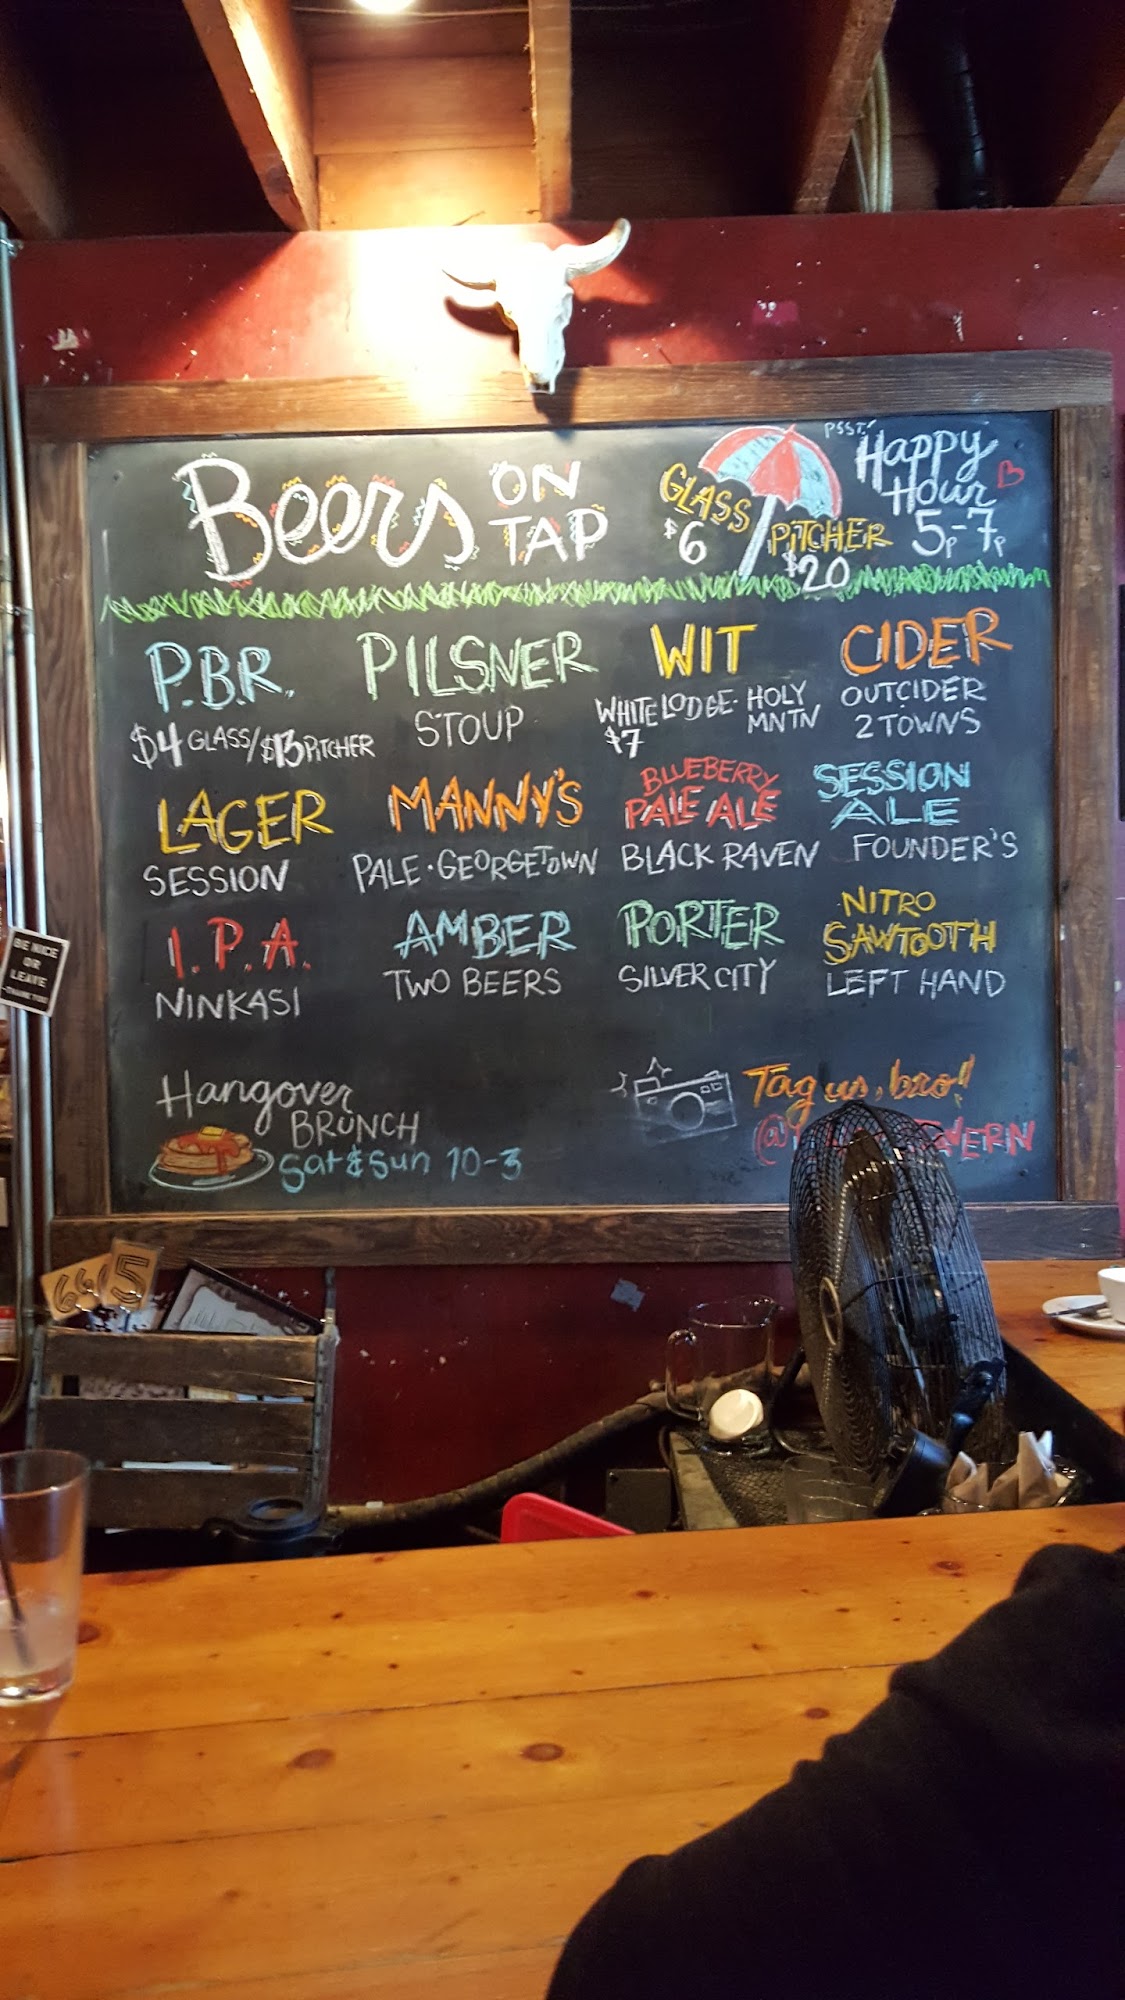 Beers ON TAP
GLASS
$6
PITCHER
$20
PSST!
Happy
Hour
5p-7p
P.B.R.
$4 GLASS/$13 PITCHER
PILSNER
STOUP
WIT
WHITE LODGE · HOLY
MNTN
$7
CIDER
OUTCIDER
2 TOWNS
LAGER
SESSION
MANNY'S
PALE · GEORGETOWN
BLUEBERRY
PALE ALE
BLACK RAVEN
SESSION
ALE
FOUNDER'S
I.P.A.
NINKASI
AMBER
TWO BEERS
PORTER
SILVER CITY
NITRO
SAWTOOTH
LEFT HAND
Hangover
BRUNCH
Sat & Sun 10-3
Tag us, bro!
BE NICE
OR
LEAVE
5